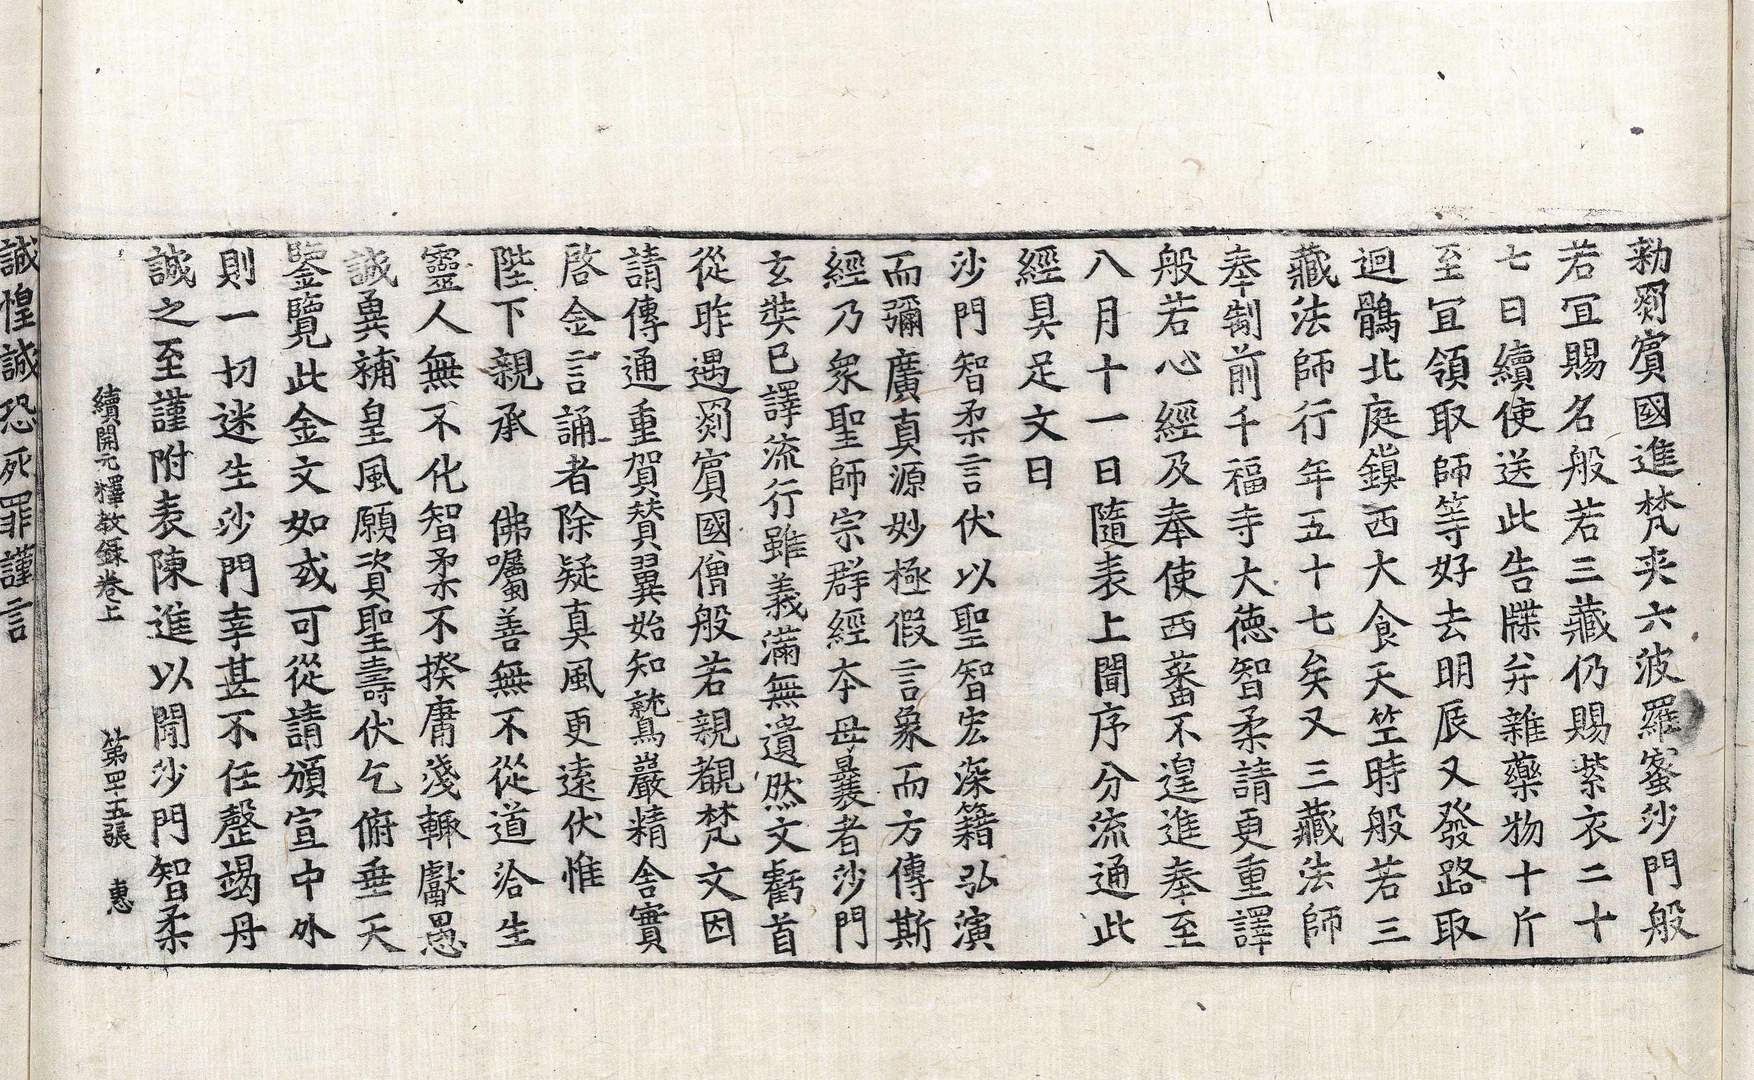 勑罽賔國進梵夾六波羅蜜沙門般
若冝賜名般若三藏仍賜紫衣二十
七日續使送此告牒并雜藥物十斤
至冝領取師等好去明辰又發路取
迴鶻北庭鎮西大食天笁時般若三
藏法師行年五十七矣又三藏法師
奉制前千福寺大徳智柔請更重譯
般若心經及奉使西蕃不遑進奉至
八月十一日隨表上聞序分流通此
經具足文曰
沙門智柔言伏以聖智宏深籍弘演
而彌廣真源妙極假言象而方傳斯
經乃衆聖師宗群經夲母曩者沙門
玄奘已譯流行雖義滿無遺然文虧首
從昨遇罽賔國僧般若親覩梵文因
請傳通重賀賛翼始知鷲巖精舎實
啓金言誦者除疑真風更遠伏惟
陛下親承　佛囑善無不從道洽生
靈人無不化智柔不揆庸淺輙獻愚
誠兾補皇風願資聖壽伏乞俯垂天
鑒覽此金文如或可從請頒宣中外
則一切迷生沙門幸甚不任罄竭丹
誠之至謹附表陳進以聞沙門智柔
續開元釋教録卷上　第四十五張　惠
誠惶誠恐死罪謹言